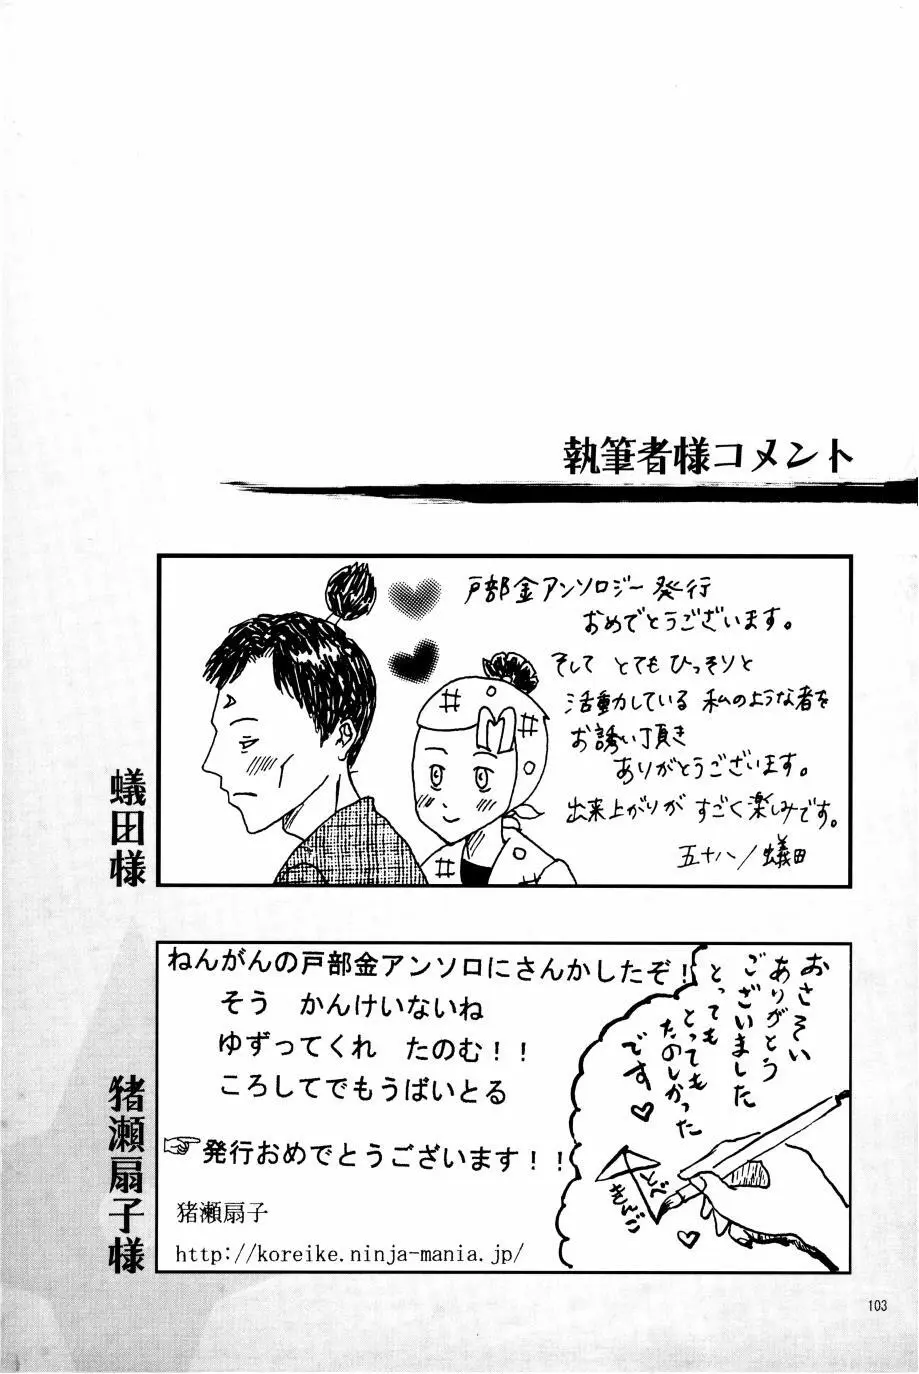 執筆者様コメント
蟻田様
戸部金アンソロジー発行
おめでとうございます。
そして とてもひっそりと
活動している 私のような者を
お誘い頂き
ありがとうございます。
出来上がりが すごく楽しみです。
五十八／蟻田
猪瀬扇子様
ねんがんの戸部金アンソロにさんかしたぞ！
そう かんけいないね
ゆずってくれ たのむ！！
ころしてでもうばいとる
☞発行おめでとうございます！！
猪瀬扇子
http://koreike.ninja-mania.jp/
おさそい
ありがとう
ございました
とっても
とっても
たのしかった
です♡
とべ
きんご
103